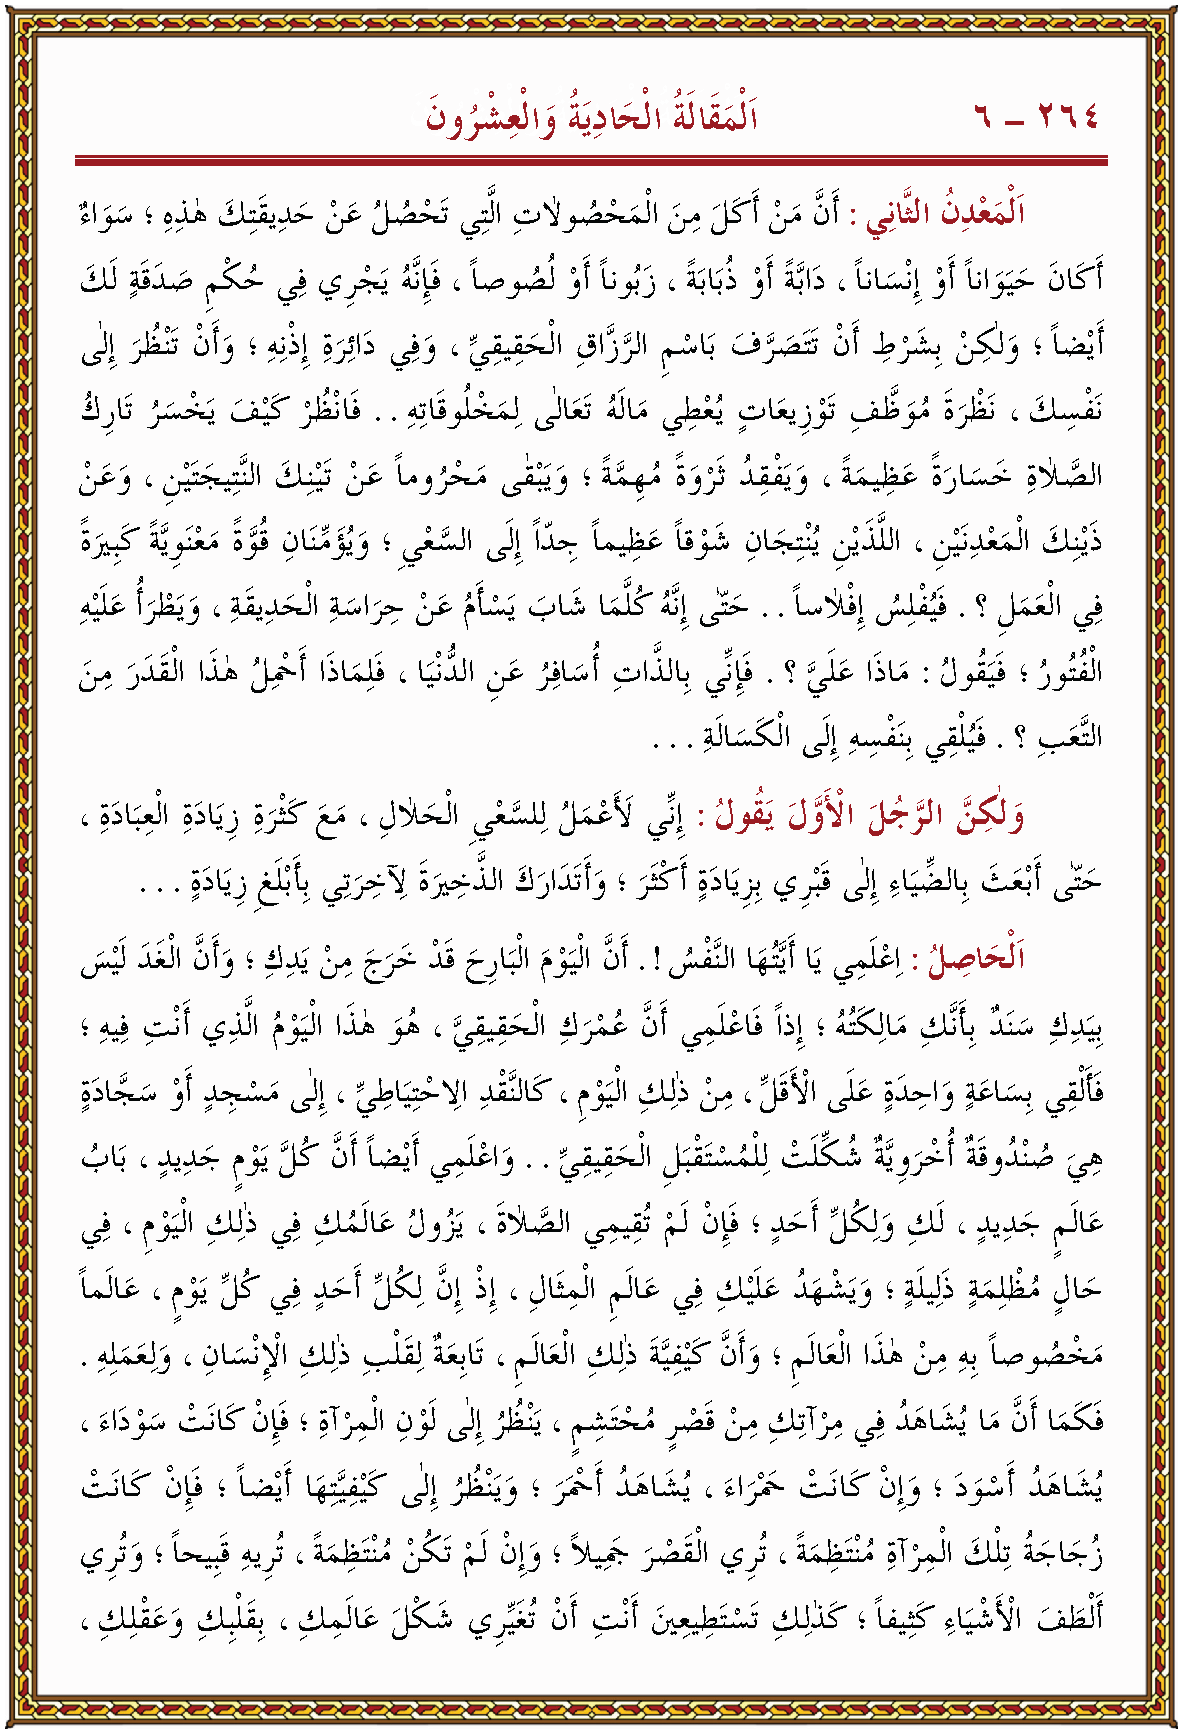 ٢٦٤ – ٦ اَلْمَقَالَةُ الْحَادِيَةُ وَالْعِشْرُونَ
اَلْمَعْدِنُ الثَّانِي : أَنَّ مَنْ أَكَلَ مِنَ الْمَحْصُولاٰتِ الَّتِي تَحْصُلُ عَنْ حَدِيقَتِكَ هٰذِهِ ؛ سَوَاءٌ
أَكَانَ حَيَوَاناً أَوْ إِنْسَاناً ، دَابَّةً أَوْ ذُبَابَةً ، زَبُوناً أَوْ لُصُوصاً ، فَإِنَّهُ يَجْرِي فِي حُكْمِ صَدَقَةٍ لَكَ
أَيْضاً ؛ وَلٰكِنْ بِشَرْطِ أَنْ تَتَصَرَّفَ بَاسْمِ الرَّزَّاقِ الْحَقِيقِيِّ ، وَفِي دَائِرَةِ إِذْنِهِ ؛ وَأَنْ تَنْظُرَ إِلٰى
نَفْسِكَ ، نَظْرَةَ مُوَظَّفِ تَوْزِيعَاتٍ يُعْطِي مَالَهُ تَعَالٰى لِمَخْلُوقَاتِهِ . . فَانْظُرْ كَيْفَ يَخْسَرُ تَارِكُ
الصَّلاٰةِ خَسَارَةً عَظِيمَةً ، وَيَفْقِدُ ثَرْوَةً مُهِمَّةً ؛ وَيَبْقٰى مَحْرُوماً عَنْ تَيْنِكَ النَّتِيجَتَيْنِ ، وَعَنْ
ذَيْنِكَ الْمَعْدِنَيْنِ ، اللَّذَيْنِ يُنْتِجَانِ شَوْقاً عَظِيماً جِدّاً إِلَى السَّعْيِ ؛ وَيُؤَمِّنَانِ قُوَّةً مَعْنَوِيَّةً كَبِيرَةً
فِي الْعَمَلِ ؟ . فَيُفْلِسُ إِفْلاٰساً . . حَتّٰى إِنَّهُ كُلَّمَا شَابَ يَسْأَمُ عَنْ حِرَاسَةِ الْحَدِيقَةِ ، وَيَطْرَأُ عَلَيْهِ
الْفُتُورُ ؛ فَيَقُولُ : مَاذَا عَلَيَّ ؟ . فَإِنِّي بِالذَّاتِ أُسَافِرُ عَنِ الدُّنْيَا ، فَلِمَاذَا أَحْمِلُ هٰذَا الْقَدَرَ مِنَ
التَّعَبِ ؟ . فَيُلْقِي بِنَفْسِهِ إِلَى الْكَسَالَةِ . . .
وَلٰكِنَّ الرَّجُلَ الْأَوَّلَ يَقُولُ : إِنِّي لَأَعْمَلُ لِلسَّعْيِ الْحَلاٰلِ ، مَعَ كَثْرَةِ زِيَادَةِ الْعِبَادَةِ ،
حَتّٰى أَبْعَثَ بِالضِّيَاءِ إِلٰى قَبْرِي بِزِيَادَةٍ أَكْثَرَ ؛ وَأَتَدَارَكَ الذَّخِيرَةَ لِآخِرَتِي بِأَبْلَغِ زِيَادَةٍ . . .
اَلْحَاصِلُ : اِعْلَمِي يَا أَيَّتُهَا النَّفْسُ ! . أَنَّ الْيَوْمَ الْبَارِحَ قَدْ خَرَجَ مِنْ يَدِكِ ؛ وَأَنَّ الْغَدَ لَيْسَ
بِيَدِكِ سَنَدٌ بِأَنَّكِ مَالِكَتُهُ ؛ إِذاً فَاعْلَمِي أَنَّ عُمْرَكِ الْحَقِيقِيَّ ، هُوَ هٰذَا الْيَوْمُ الَّذِي أَنْتِ فِيهِ ؛
فَأَلْقِي بِسَاعَةٍ وَاحِدَةٍ عَلَى الْأَقَلِّ ، مِنْ ذٰلِكِ الْيَوْمِ ، كَالنَّقْدِ الِاحْتِيَاطِيِّ ، إِلٰى مَسْجِدٍ أَوْ سَجَّادَةٍ
هِيَ صُنْدُوقَةٌ أُخْرَوِيَّةٌ شُكِّلَتْ لِلْمُسْتَقْبَلِ الْحَقِيقِيِّ . . وَاعْلَمِي أَيْضاً أَنَّ كُلَّ يَوْمٍ جَدِيدٍ ، بَابُ
عَالَمٍ جَدِيدٍ ، لَكِ وَلِكُلِّ أَحَدٍ ؛ فَإِنْ لَمْ تُقِيمِي الصَّلاٰةَ ، يَزُولُ عَالَمُكِ فِي ذٰلِكِ الْيَوْمِ ، فِي
حَالٍ مُظْلِمَةٍ ذَلِيلَةٍ ؛ وَيَشْهَدُ عَلَيْكِ فِي عَالَمِ الْمِثَالِ ، إِذْ إِنَّ لِكُلِّ أَحَدٍ فِي كُلِّ يَوْمٍ ، عَالَماً
مَخْصُوصاً بِهِ مِنْ هٰذَا الْعَالَمِ ؛ وَأَنَّ كَيْفِيَّةَ ذٰلِكِ الْعَالَمِ ، تَابِعَةٌ لِقَلْبِ ذٰلِكِ الْإِنْسَانِ ، وَلِعَمَلِهِ .
فَكَمَا أَنَّ مَا يُشَاهَدُ فِي مِرْآتِكِ مِنْ قَصْرٍ مُحْتَشِمٍ ، يَنْظُرُ إِلٰى لَوْنِ الْمِرْآةِ ؛ فَإِنْ كَانَتْ سَوْدَاءَ ،
يُشَاهَدُ أَسْوَدَ ؛ وَإِنْ كَانَتْ حَمْرَاءَ ، يُشَاهَدُ أَحْمَرَ ؛ وَيَنْظُرُ إِلٰى كَيْفِيَّتِهَا أَيْضاً ؛ فَإِنْ كَانَتْ
زُجَاجَةُ تِلْكَ الْمِرْآةِ مُنْتَظِمَةً ، تُرِي الْقَصْرَ جَمِيلاً ؛ وَإِنْ لَمْ تَكُنْ مُنْتَظِمَةً ، تُرِيهِ قَبِيحاً ؛ وَتُرِي
أَلْطَفَ الْأَشْيَاءِ كَثِيفاً ؛ كَذٰلِكِ تَسْتَطِيعِينَ أَنْتِ أَنْ تُغَيِّرِي شَكْلَ عَالَمِكِ ، بِقَلْبِكِ وَعَقْلِكِ ،